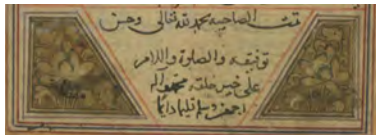 تمت الصاحبيه بحمد لله تعالى وحسن
توفيقه والصلوة والسلام
على خير خلقه محمد واله
اجمعين وسلم تسليما دايما